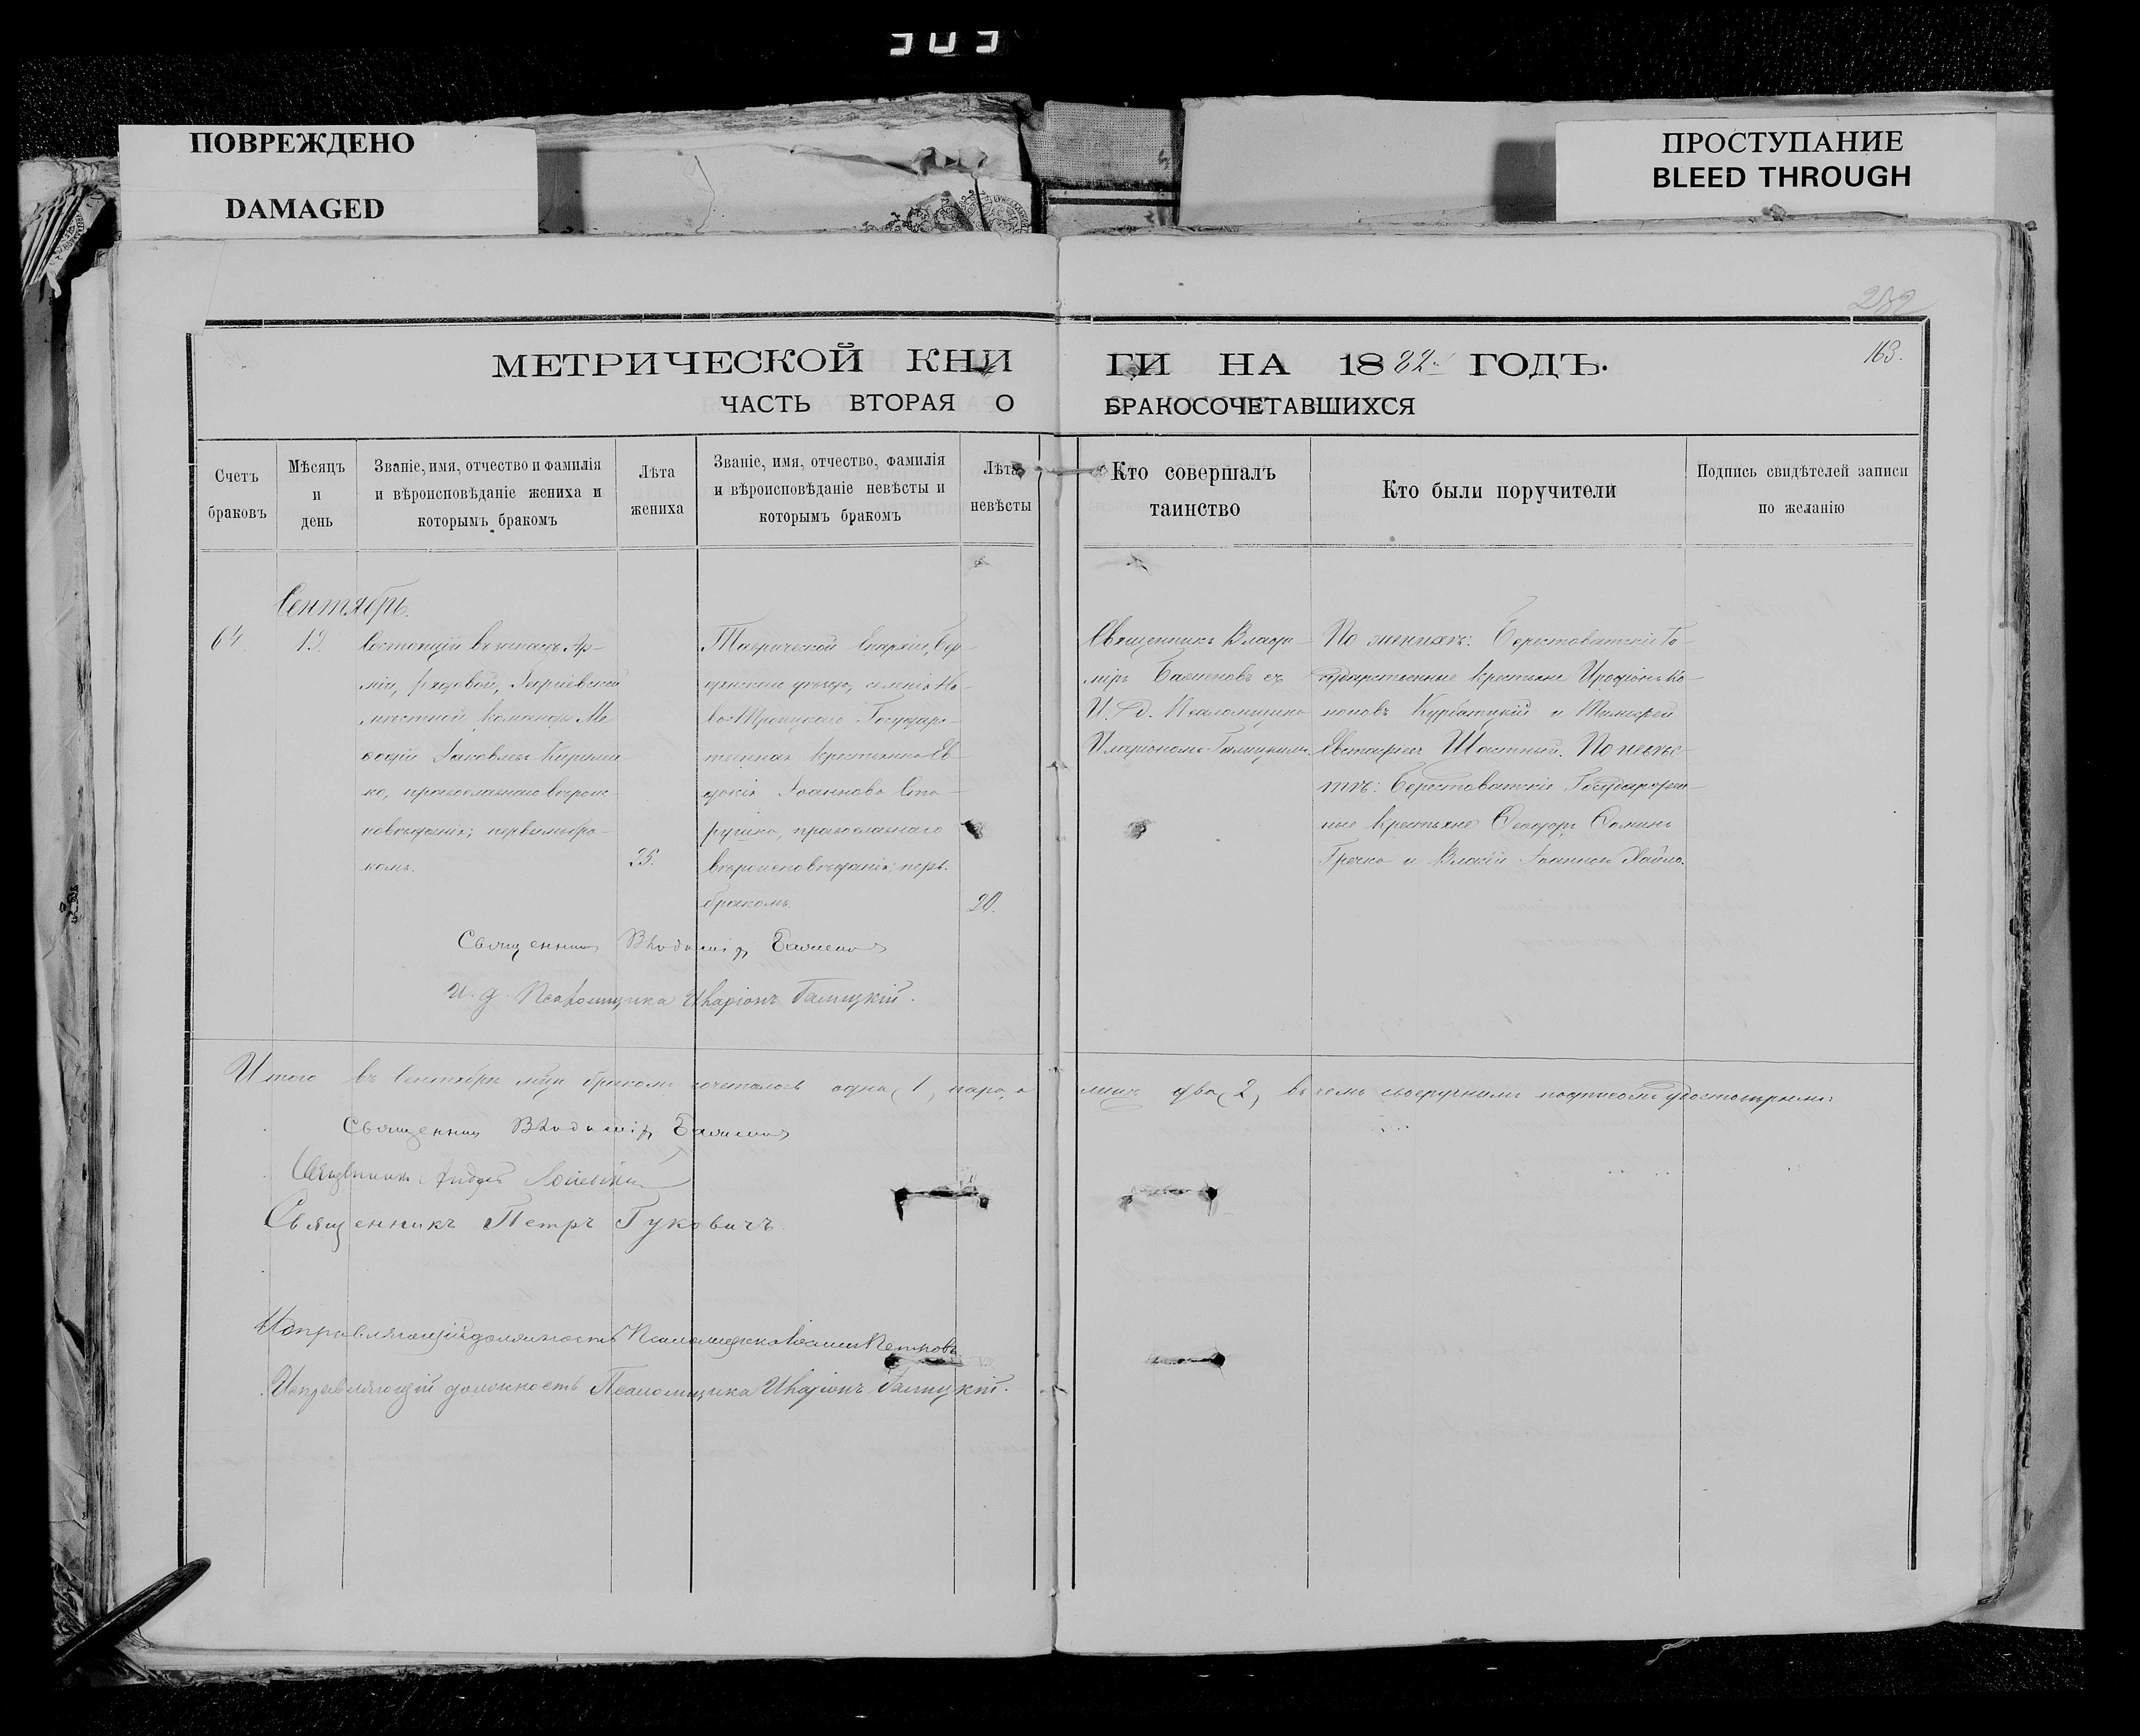 ПОВРЕЖДЕНО
DAMAGED
ПРОСТУПАНИЕ
BLEED THROUGH
МЕТРИЧЕСКОЙ КНИ ГИ НА 1882 ГОДЪ.
163.
ЧАСТЬ ВТОРАЯ О БРАКОСОЧЕТАВШИХСЯ
Счетъ
браковъ
Мѣсяцъ
и
день
Званіе, имя, отчество и фамилія
и вѣроисповѣданіе жениха и
которымъ бракомъ
Лѣта
жениха
Званіе, имя, отчество, фамилія
и вѣроисповѣданіе невѣсты и
которымъ бракомъ
Лѣта
невѣсты
Кто совершалъ
таинство
Кто были поручители
Подпись свидѣтелей записи
по желанію
Сентябрь.
64.
19.
Состоящій въ запасѣ Ар-
міи, рядовой, Георгіевской
мѣстной команды Ме-
ѳодій Іаковлевъ
ко, православнаго вѣроис-
повѣданія; первымъ бра-
комъ.
25.
Таврической Епархіи, Бер-
дянскаго уѣзда, селенія Но-
во-Троицкаго Государ-
твенная крестьянка Ев-
докія Іоаннова
православнаго
вѣроисповѣданія; перв.
бракомъ.
20.
Священникъ Влади-
міръ Баженовъ съ
И. д. Псаломщика
Иларіономъ Галицкимъ.
По женихѣ: Берестоватскіе Го-
сударственные крестьяне Иродіонъ Ко-
ноновъ Курбатскій и Тимоѳей
Евстафіевъ Шастный. По невѣс-
тѣ: Берестоватскіе Государствен-
ные крестьяне Ѳеодоръ Ѳоминъ
Гречка и Власій Іоанновъ Хайло.
Священникъ Владиміръ Баженовъ
И. д. Псаломщика Иларіонъ Галицкій.
Итого въ Сентябрѣ м-цѣ бракомъ сочеталось одна (1) пара, а лицъ два (2), въ чемъ своеручнымъ подписомъ удостовѣряемъ:
Священникъ Владиміръ Баженовъ
Священникъ Андрей
Священникъ Петръ Гуковичъ
Исправляющій должность Псаломщика Іоаннъ Петровъ
Исправляющій должность Псаломщика Иларіонъ Галицкій.